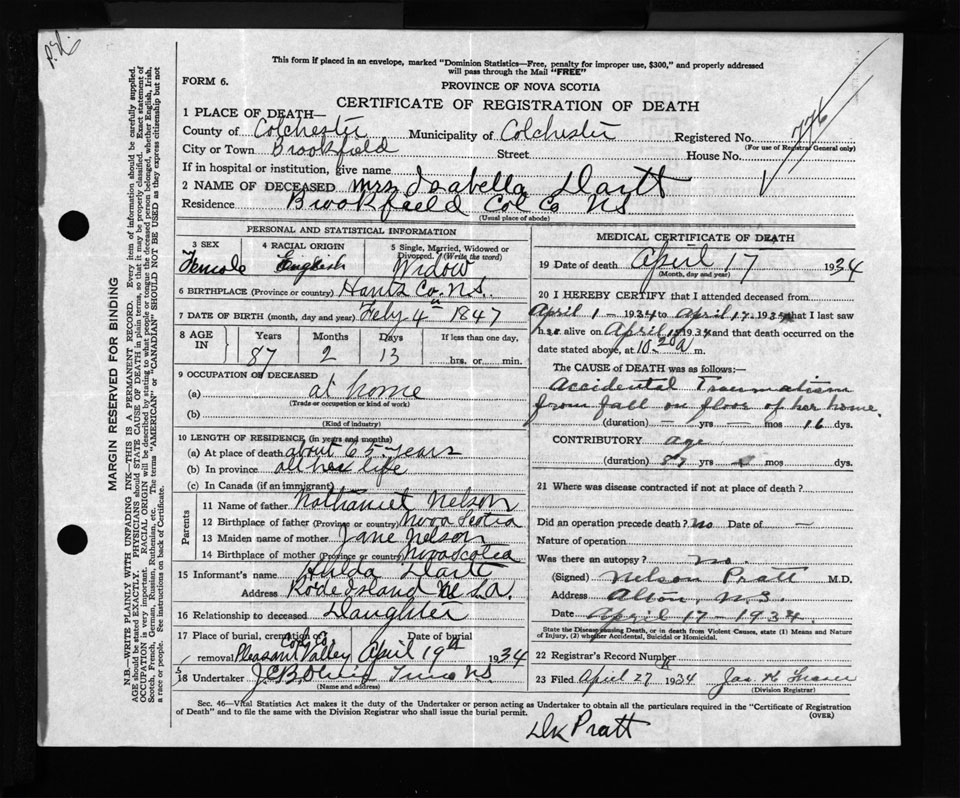 This form if placed in an envelope, marked "Dominion Statistics—Free, penalty for improper use, $300," and properly addressed
will pass through the Mail "FREE"
FORM 6.
PROVINCE OF NOVA SCOTIA
CERTIFICATE OF REGISTRATION OF DEATH
1 PLACE OF DEATH—
County of Colchester Municipality of Colchester Registered No. 776
(For use of Registrar General only)
City or Town Brookfield Street House No.
If in hospital or institution, give name
2 NAME OF DECEASED Mrs Isabella Dartt
Residence Brookfield Col Co NS
(Usual place of abode)
PERSONAL AND STATISTICAL INFORMATION
3 SEX
Female
4 RACIAL ORIGIN
English
5 Single, Married, Widowed or
Divorced. (Write the word)
Widow
6 BIRTHPLACE (Province or country) Hants Co. N.S.
7 DATE OF BIRTH (month, day and year) Feby 4th 1847
8 AGE IN
Years Months Days If less than one day,
87 2 13 hrs. or min.
9 OCCUPATION OF DECEASED
(a) at home
(Trade or occupation or kind of work)
(b)
(Kind of industry)
10 LENGTH OF RESIDENCE (in years and months)
(a) At place of death about 65 years
(b) In province all her life
(c) In Canada (if an immigrant)
Parents
11 Name of father Nathaniel Nelson
12 Birthplace of father (Province or country) Nova Scotia
13 Maiden name of mother Jane Nelson
14 Birthplace of mother (Province or country) Nova Scotia
15 Informant's name Hilda Dartt
Address Rode Island U.S.A.
16 Relationship to deceased Daughter
17 Place of burial, cremation or Date of burial
removal Pleasant Valley April 19th 1934
18 Undertaker Truro NS
(Name and address)
MEDICAL CERTIFICATE OF DEATH
19 Date of death April 17 1934
(Month, day and year)
20 I HEREBY CERTIFY that I attended deceased from
April 1 - 1934 to April 17 - 1934 that I last saw
her alive on April 17 1934 and that death occurred on the
date stated above, at 10-20 a m.
The CAUSE OF DEATH was as follows:
Accidental Traumatism
from fall on floor of her home.
(duration) — yrs — mos 16 dys.
CONTRIBUTORY age
(duration) 87 yrs mos dys.
21 Where was disease contracted if not at place of death?
Did an operation precede death? no Date of —
Nature of operation
Was there an autopsy? no.
(Signed) Nelson Pratt M.D.
Address Alton, N.S.
Date April - 17 - 1934.
State the Disease causing Death, or in death from Violent Causes, state (1) Means and Nature
of Injury, (2) whether Accidental, Suicidal or Homicidal.
22 Registrar's Record Number
23 Filed April 27 1934 Jas K Fraser
(Division Registrar)
Sec. 46—Vital Statistics Act makes it the duty of the Undertaker or person acting as Undertaker to obtain all the particulars required in the "Certificate of Registration
of Death" and to file the same with the Division Registrar who shall issue the burial permit. (OVER)
Dr Pratt
MARGIN RESERVED FOR BINDING
N.B.—WRITE PLAINLY WITH UNFADING INK—THIS IS A PERMANENT RECORD. Every item of information should be carefully supplied.
AGE should be stated EXACTLY. PHYSICIANS should STATE CAUSE OF DEATH in plain terms, so that it may be properly classified. Exact statement of
OCCUPATION is very important. RACIAL ORIGIN will be described by stating to what people or tongue the deceased person belonged, whether English, Irish,
Scotch, French, German, Russian, Ruthenian, etc. The terms "AMERICAN" or "CANADIAN" SHOULD NOT BE USED as they express citizenship but not
a race or people. See instructions on back of Certificate.